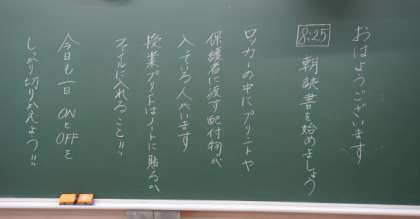 おはようございます
8:25
朝読書を始めましょう
ロッカーの中にプリントや
保護者に渡す配付物が
入っている人がいます
授業プリントはノートに貼るか
ファイルに入れること!!
今日も一日 ONとOFFを
しっかり切りかえよう!!